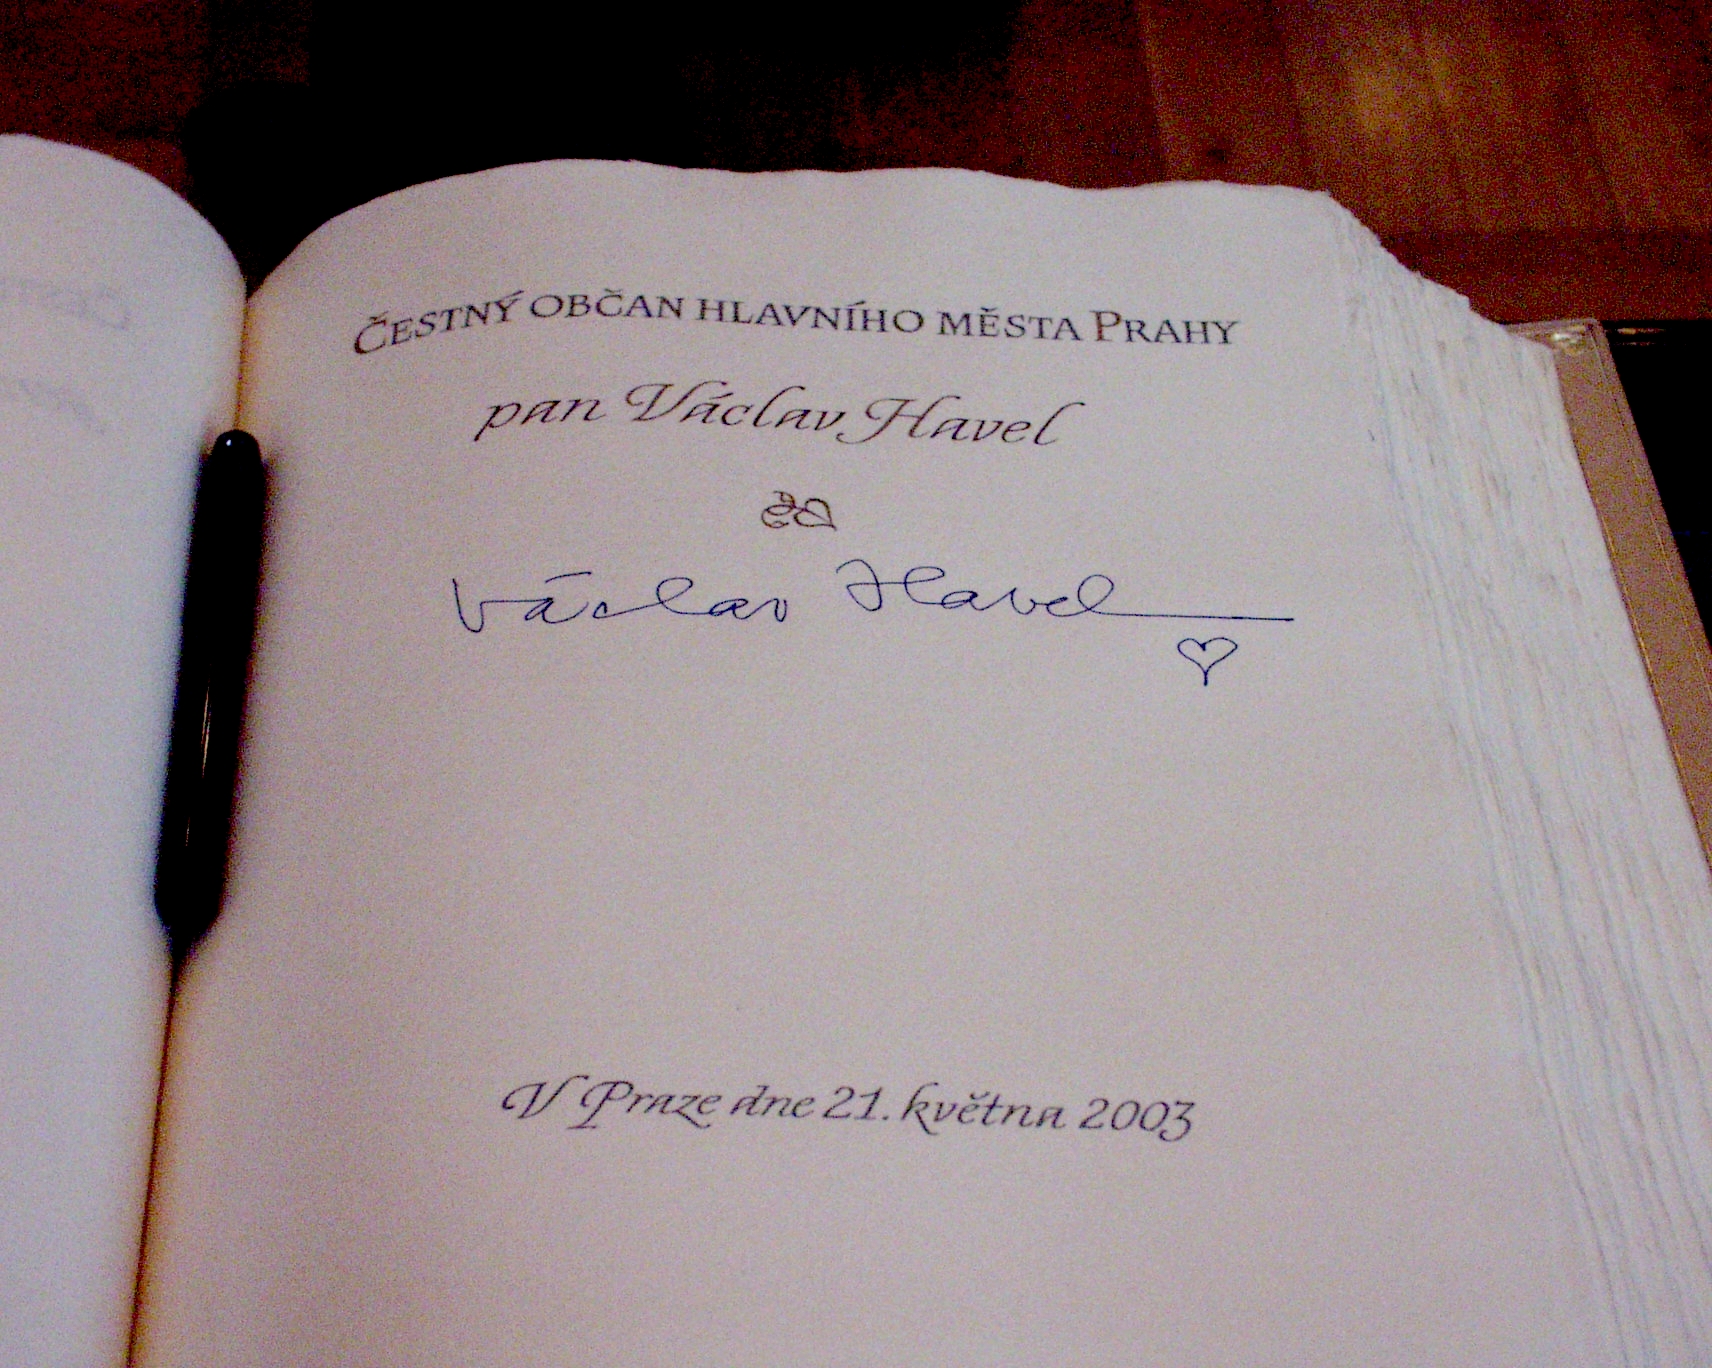 ČESTNÝ OBČAN HLAVNÍHO MĚSTA PRAHY
pan Václav Havel
Václav Havel
V Praze dne 21. května 2003